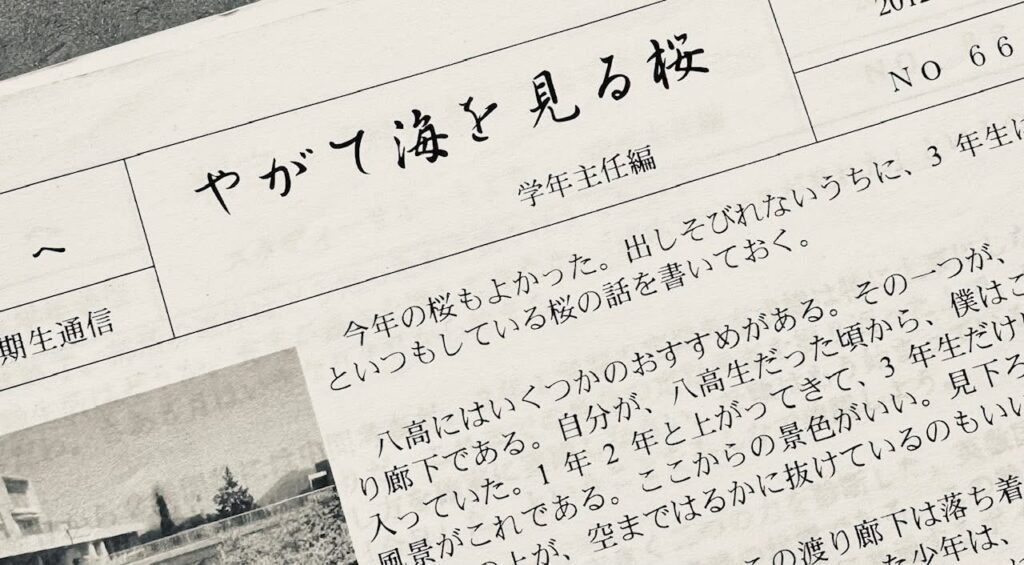 2012
NO 66
やがて海を見る桜
学年主任編
へ
期生通信
今年の桜もよかった。出しそびれないうちに、3年生に
といつもしている桜の話を書いておく。
八高にはいくつかのおすすめがある。その一つが、
り廊下である。自分が、八高生だった頃から、僕はこ
入っていた。1年2年と上がってきて、3年生だけ
風景がこれである。ここからの景色がいい。見下ろ
の上が、空まではるかに抜けているのもいい
この渡り廊下は落ち着
た少年は、